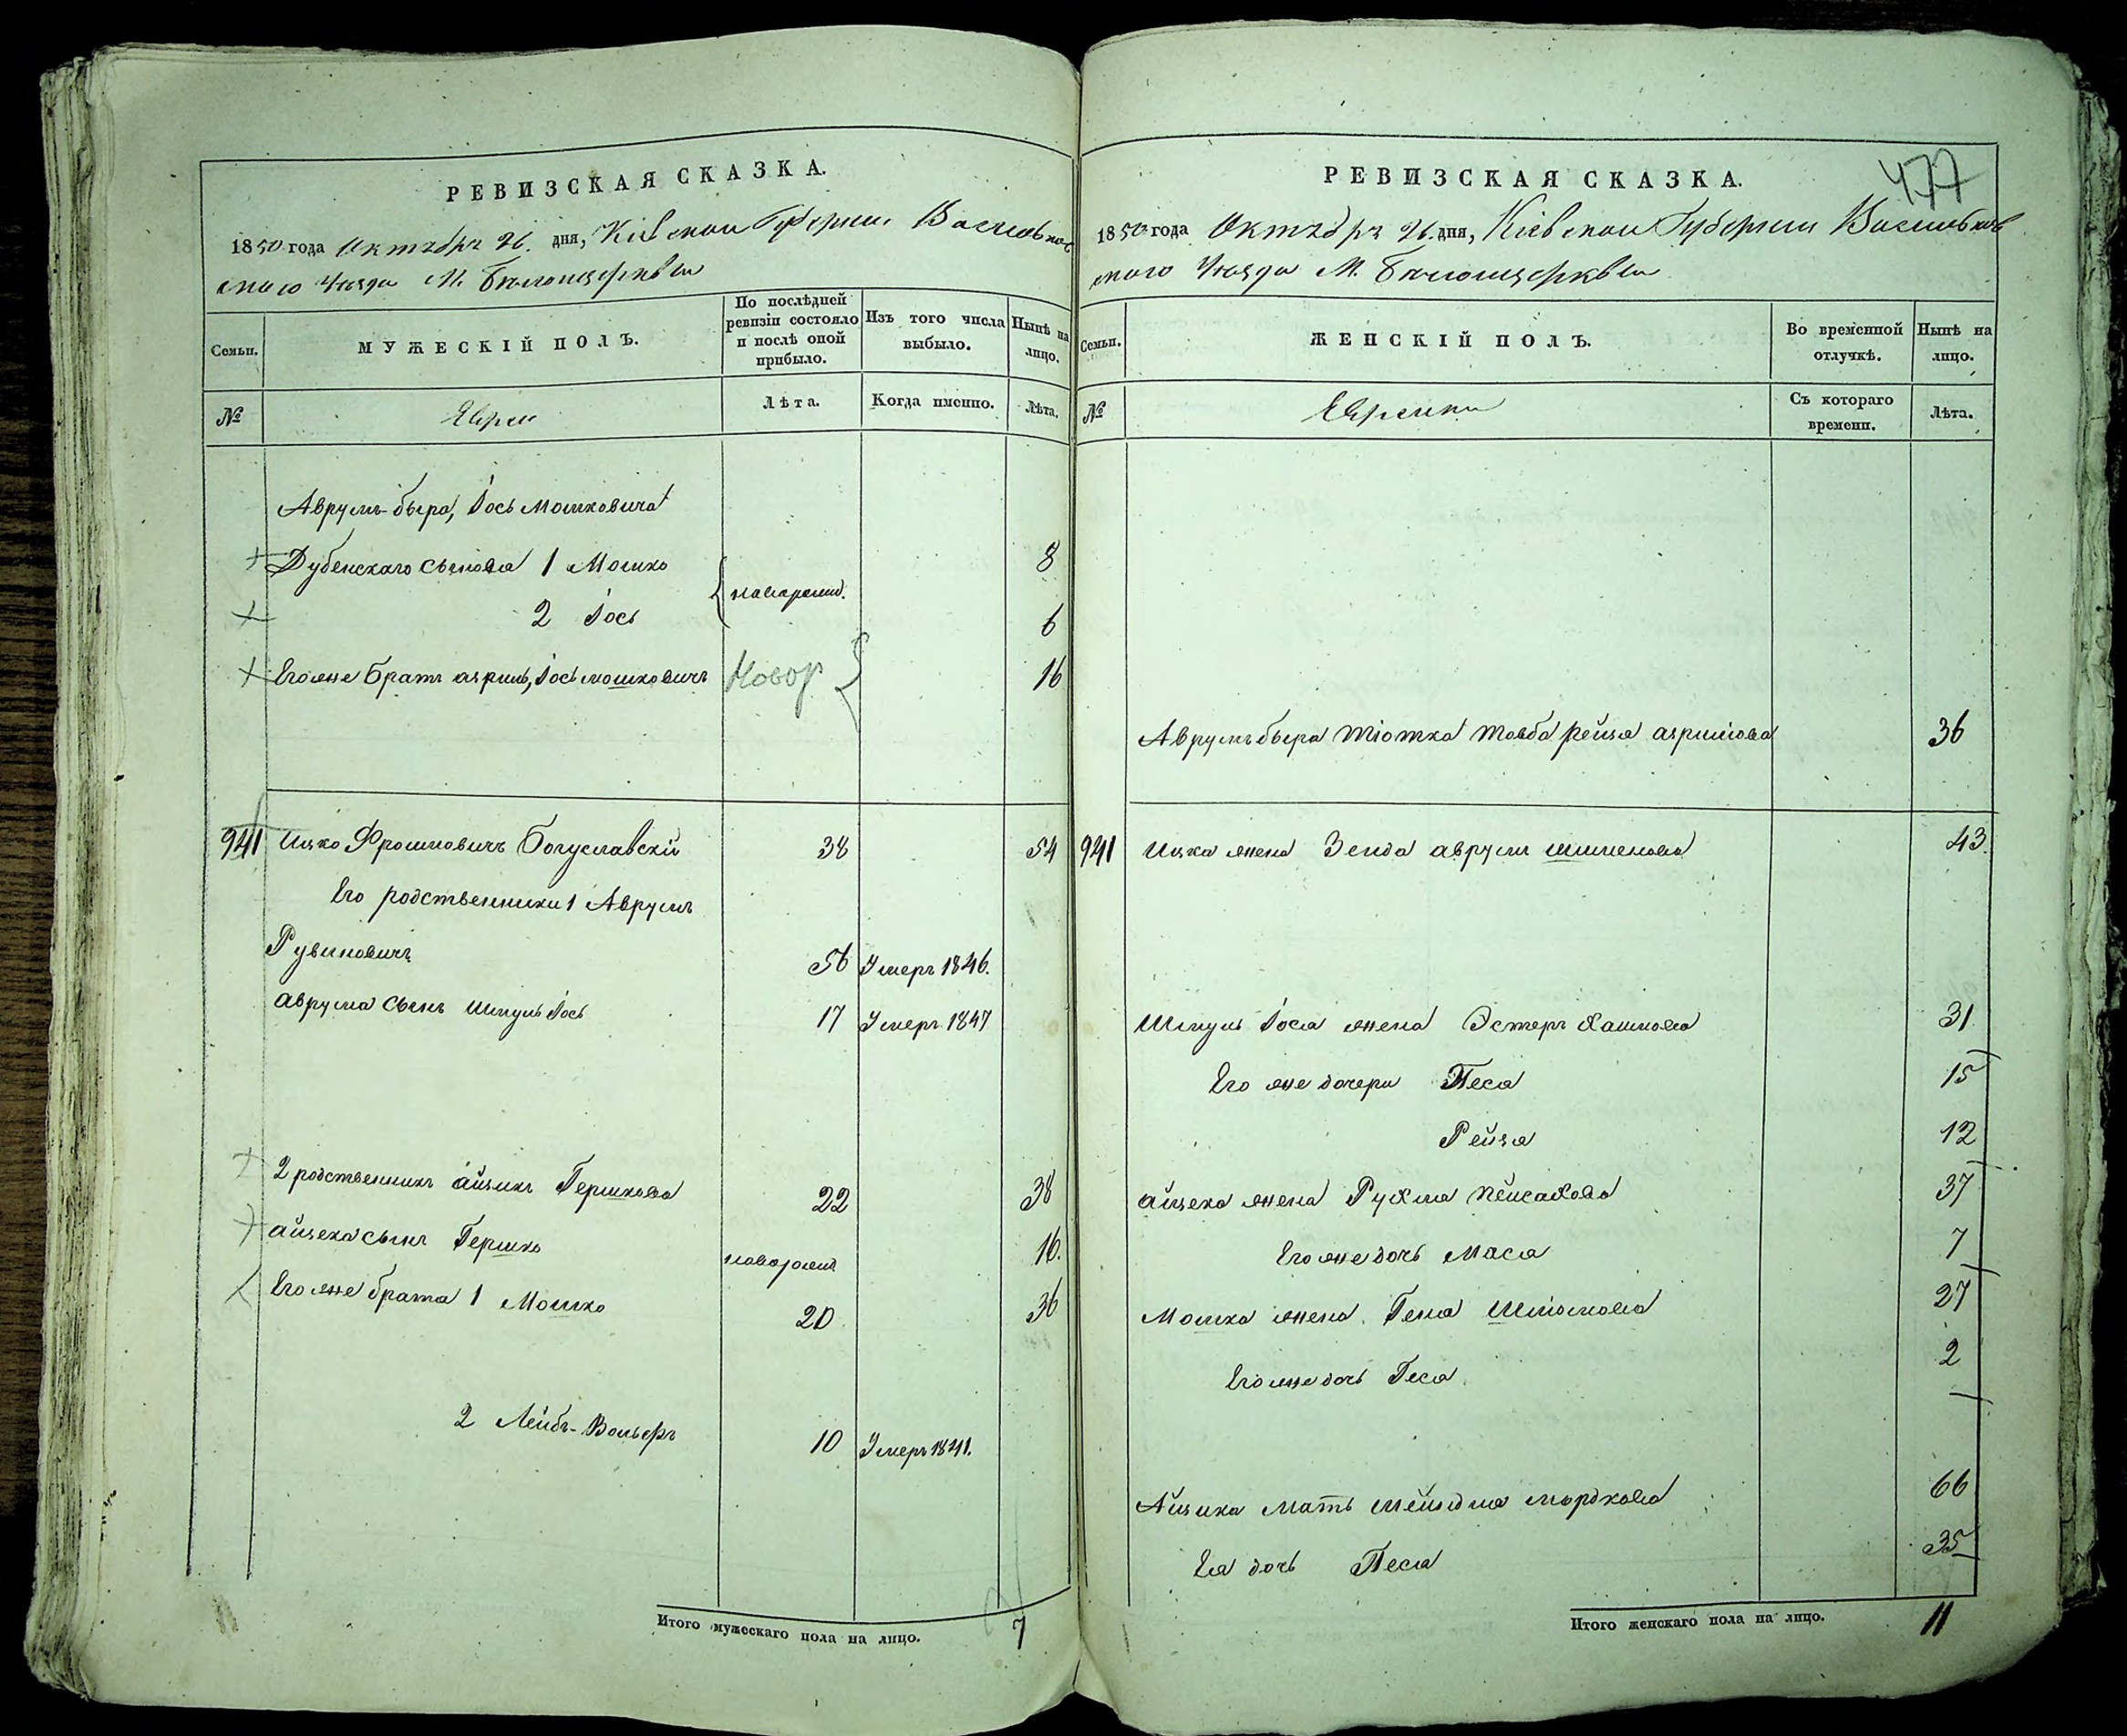 РЕВИЗСКАЯ СКАЗКА.
1850 года Октября 26. дня, Кіевской Губерніи Васильков
скаго Уезда М. Белоцерквы
Семьи.
МУЖЕСКІЙ ПОЛЪ.
По послѣдней ревизіи состояло и послѣ оной прибыло.
Изъ того числа выбыло.
Нынѣ на лицо.
№
Евреи
Лѣта.
Когда именно.
Лѣта.
Аврумъ-бера, Іось Мошковича
Дубенскаго сыновя 1 Мошко 8
новорожд.
2 Іось 6
Егоже братъ азриль, Іось мошковичъ Новор 16
941 Ицко Фроимовичъ Богуславскій 38 54
Его родственники 1 Аврумъ
Рувиновичъ 56 Умеръ 1846.
аврума сынъ Шмуль Іось 17 Умеръ 1847
2 родственникъ айзикъ Гершкова 22 38
айзека сынъ Гершко новорожд 16.
Егоже брата 1 Мошко 20 36
2 Лейбъ-Вольфъ 10 Умеръ 1841.
Итого мужескаго пола на лицо. 7
477
РЕВИЗСКАЯ СКАЗКА.
1850 года Октября 26. дня, Кіевской Губерніи Васильков
скаго Уезда М. Белоцерквы
Семьи.
ЖЕНСКІЙ ПОЛЪ.
Во временной отлучкѣ.
Нынѣ на лицо.
№
Еврейки
Съ котораго времени.
Лѣта.
Аврумъ бера тіотка товба Рейза азрилова 36
941 Ицка жена Зелда аврум 43.
Шмуль Іося жена Эстеръ Хаимова 31
Его же дочери Песя 15
Рейзя 12
айзека жена Рухля пейсахова 37
Егоже дочь Мася 7
Мошка жена Геня Шліомова 27
Егоже дочь Геся. 2
Айзика мать мордкова 66
Ея дочь Песя 35
Итого женскаго пола на лицо. 11